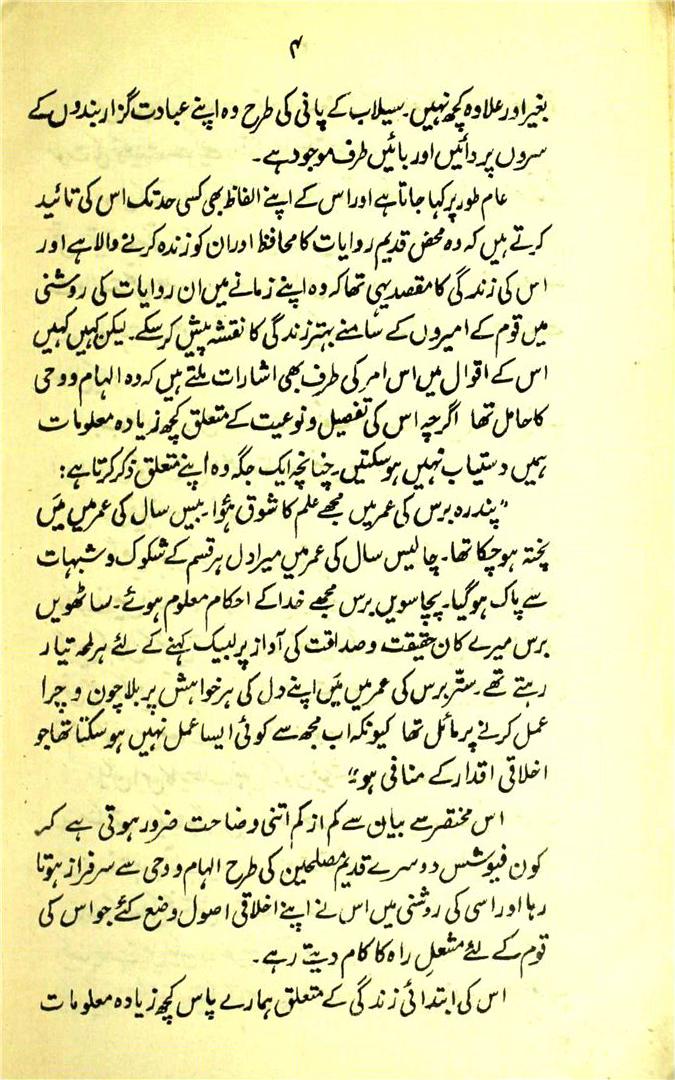 ۴
بغیر اور علاوہ کچھ نہیں۔ سیلاب کے پانی کی طرح وہ اپنے عبادت گزار بندوں کے
سروں پر دائیں اور بائیں طرف موجود ہے۔
عام طور پر کہا جاتا ہے اور اس کے اپنے الفاظ بھی کسی حد تک اس کی تائید
کرتے ہیں کہ وہ محض قدیم روایات کا محافظ اور ان کو زندہ کرنے والا ہے اور
اس کی زندگی کا مقصد یہی تھا کہ وہ اپنے زمانے میں ان روایات کی روشنی
میں قوم کے امیروں کے سامنے بہتر زندگی کا نقشہ پیش کر سکے۔ لیکن کہیں کہیں
اس کے اقوال میں اس امر کی طرف بھی اشارات ملتے ہیں کہ وہ الہام و وحی
کا حامل تھا اگرچہ اس کی تفصیل و نوعیت کے متعلق کچھ زیادہ معلومات
ہمیں دستیاب نہیں ہو سکتیں۔ چنانچہ ایک جگہ وہ اپنے متعلق ذکر کرتا ہے:
"پندرہ برس کی عمر میں مجھے علم کا شوق ہؤا۔ بیس سال کی عمر میں مَیں
پختہ ہو چکا تھا۔ چالیس سال کی عمر میں میرا دل ہر قسم کے شکوک و شبہات
سے پاک ہو گیا۔ پچاسویں برس مجھے خدا کے احکام معلوم ہوئے۔ ساٹھویں
برس میرے کان حقیقت و صداقت کی آواز پر لبیک کہنے کے لئے ہر لمحہ تیار
رہتے تھے۔ ستّر برس کی عمر میں مَیں اپنے دل کی ہر خواہش پر بلا چون و چرا
عمل کرنے پر مائل تھا کیونکہ اب مجھ سے کوئی ایسا عمل نہیں ہو سکتا تھا جو
اخلاقی اقدار کے منافی ہو۔"
اس مختصر سے بیان سے کم از کم اتنی وضاحت ضرور ہوتی ہے کہ
کون فیوشس دوسرے قدیم مصلحین کی طرح الہام و وحی سے سرفراز ہوتا
رہا اور اسی کی روشنی میں اس نے اپنے اخلاقی اصول وضع کئے جو اس کی
قوم کے لئے مشعلِ راہ کا کام دیتے رہے۔
اس کی ابتدائی زندگی کے متعلق ہمارے پاس کچھ زیادہ معلومات